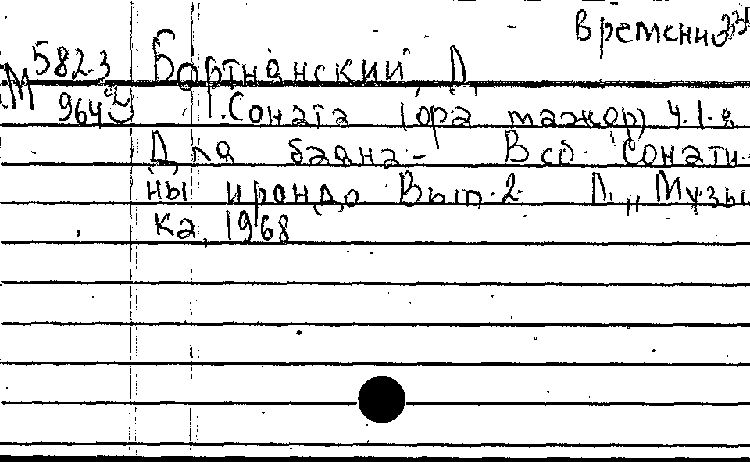 временно
5823 Бортнянский, Д.
М 964 1. Соната (фа мажор) Ч. 1-я
Для баяна - В сб. Сонати-
ны и рондо Вып. 2. Л., „Музы
ка, 1968